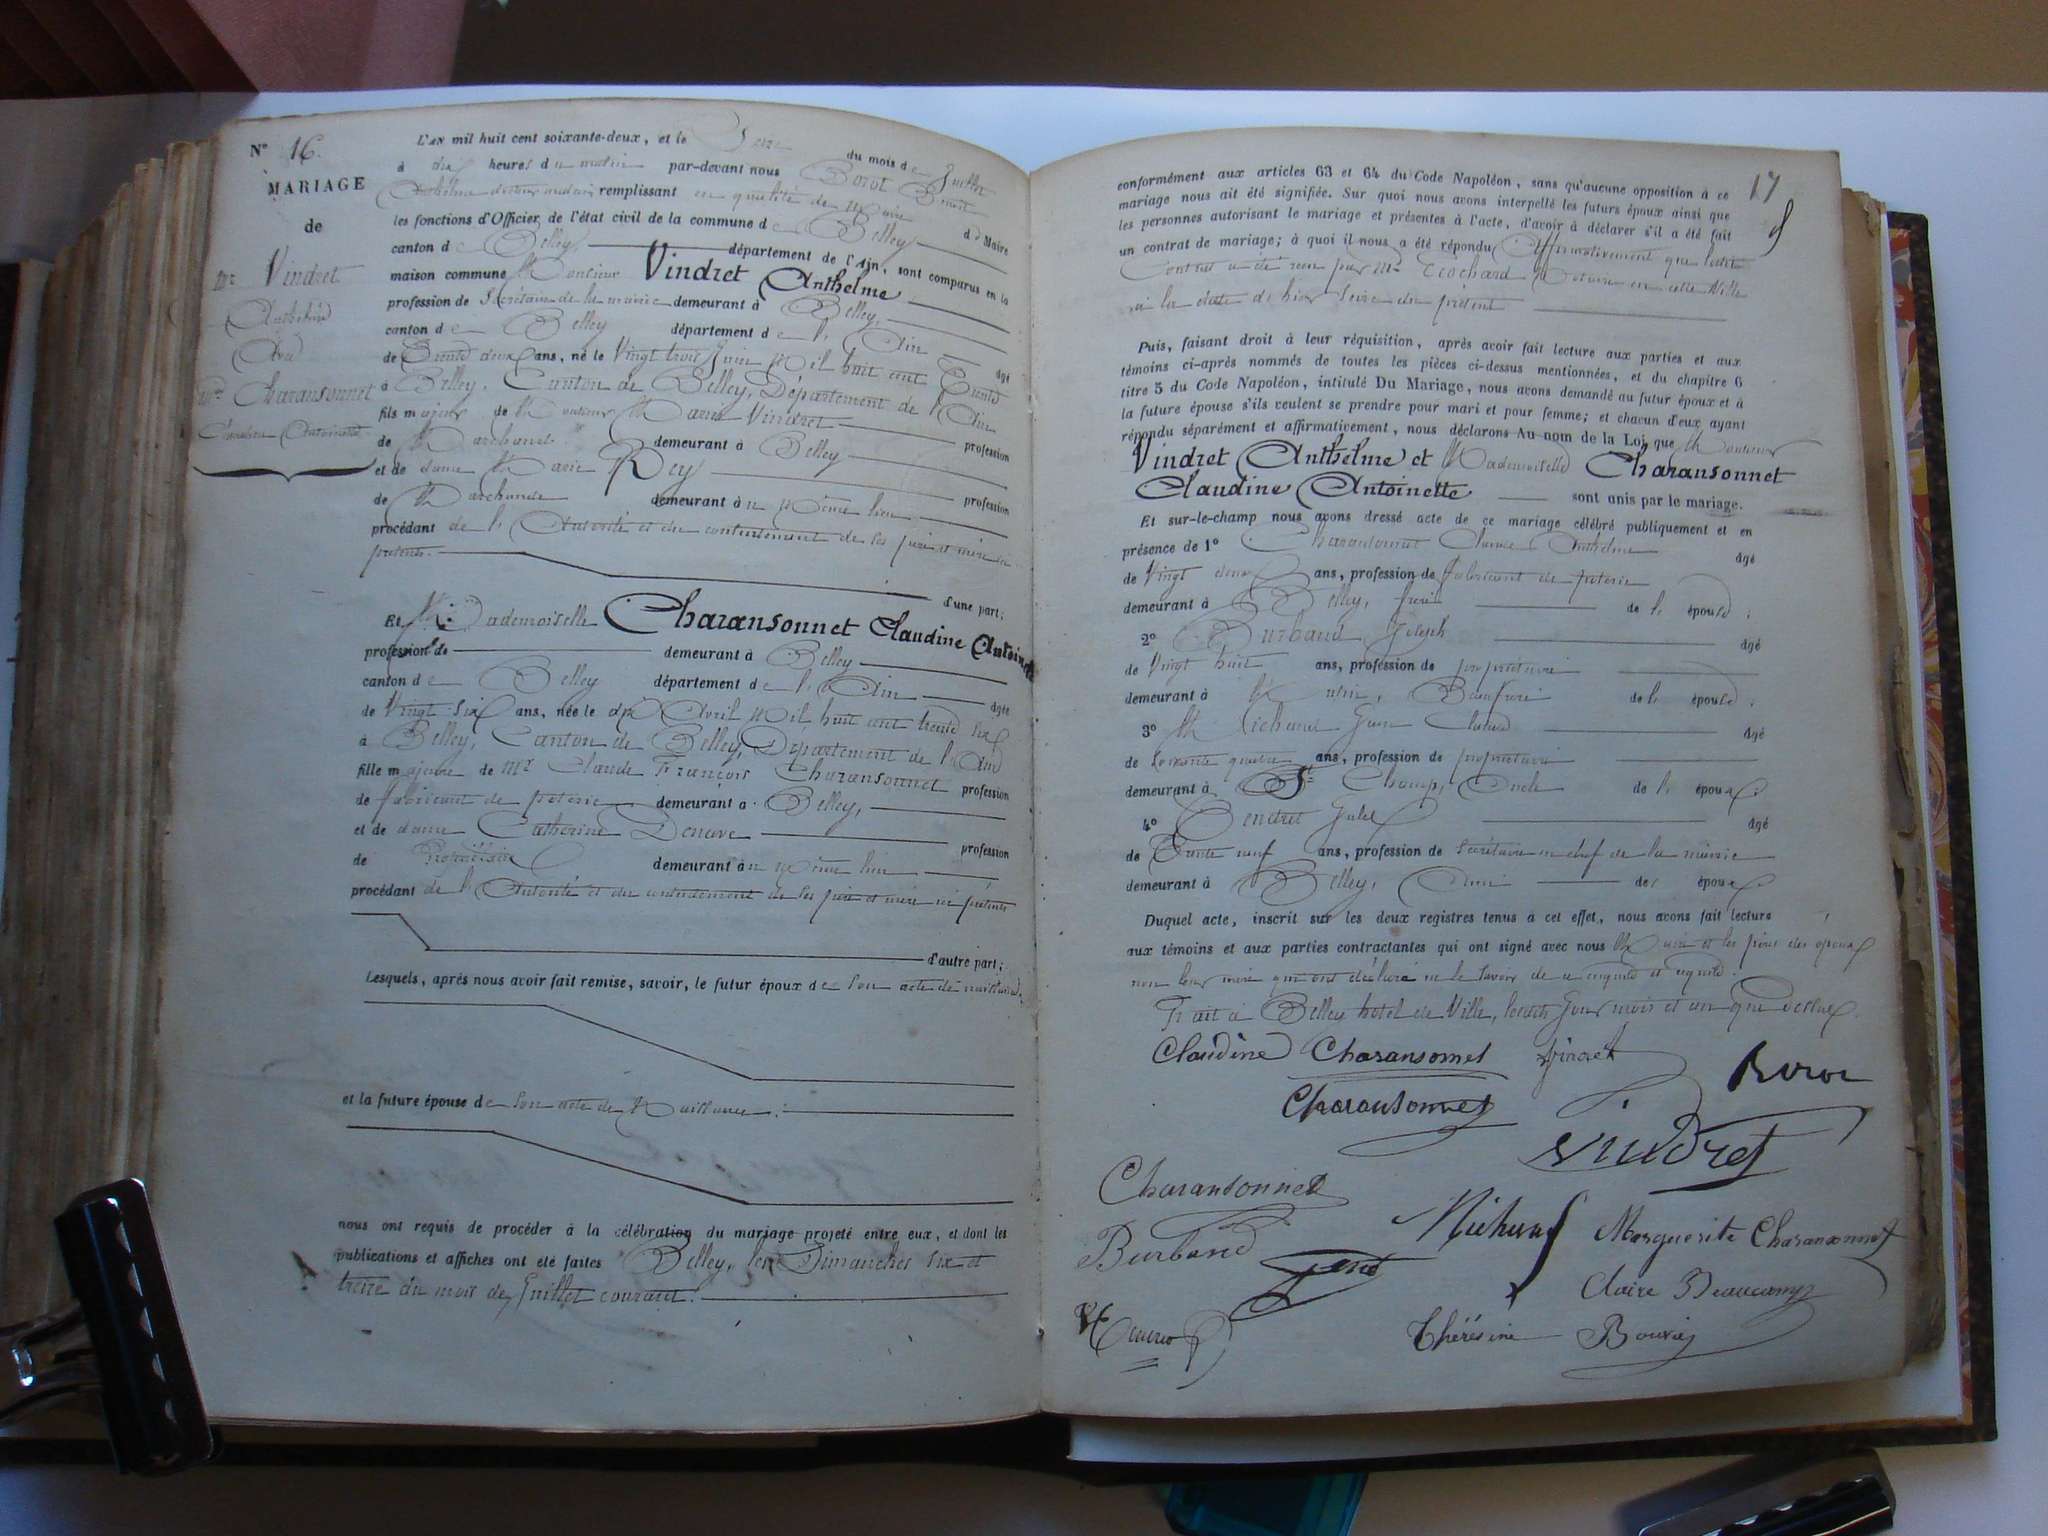 N° 16.
MARIAGE
de
Mr Vindret
Anthelme
Avec
Mlle Charansonnet
Claudine Antoinette
L'AN mil huit cent soixante-deux, et le Seize du mois de Juillet
à dix heures du matin par-devant nous Borot Benoit
Anthelme docteur médecin remplissant en qualité de Maire
les fonctions d'Officier de l'état civil de la commune de Belley d Maire
canton de Belley département de l'Ain, sont comparus en la
maison commune Monsieur Vindret Anthelme
profession de Secrétaire de la mairie demeurant à Belley,
canton de Belley département de l'Ain âgé
de Trente deux ans, né le Vingt trois Juin Mil huit cent Trente
à Belley, Canton de Belley, Département de l'Ain
fils majeur de Monsieur Vindret profession
de Marchand demeurant à Belley
et de dame Marie Rey profession
de Marchande demeurant au même lieu
procédant de l'Autorité et du consentement de ses père et mère ici
présents. d'une part;
Et Mademoiselle Charansonnet Claudine Antoinette
profession de demeurant à Belley
canton de Belley département de l'Ain âgée
de Vingt six ans, née le dix Avril Mil huit cent trente six
à Belley, Canton de Belley, Département de l'Ain
fille majeure de Mr Claude François Charansonnet profession
de fabricant de poterie demeurant à Belley,
et de dame Catherine profession
de demeurant au même lieu
procédant de l'Autorité et du consentement de ses père et mère ici présents
d'autre part;
Lesquels, après nous avoir fait remise, savoir, le futur époux de Son acte de naissance,
et la future épouse de Son acte de Naissance;
nous ont requis de procéder à la célébration du mariage projeté entre eux, et dont les
publications et affiches ont été faites Belley, les Dimanches six et
treize du mois de Juillet courant.
17
conformément aux articles 63 et 64 du Code Napoléon, sans qu'aucune opposition à ce
mariage nous ait été signifiée. Sur quoi nous avons interpellé les futurs époux ainsi que
les personnes autorisant le mariage et présentes à l'acte, d'avoir à déclarer s'il a été fait
un contrat de mariage; à quoi il nous a été répondu Affirmativement que
Contrat a été reçu par Me Trochard Notaire en cette Ville
à la date de hier du présent
Puis, faisant droit à leur réquisition, après avoir fait lecture aux parties et aux
témoins ci-après nommés de toutes les pièces ci-dessus mentionnées, et du chapitre 6
titre 5 du Code Napoléon, intitulé Du Mariage, nous avons demandé au futur époux et à
la future épouse s'ils veulent se prendre pour mari et pour femme; et chacun d'eux ayant
répondu séparément et affirmativement, nous déclarons Au nom de la Loi que Monsieur
Vindret Anthelme et Mademoiselle Charansonnet
Claudine Antoinette sont unis par le mariage.
Et sur-le-champ nous avons dressé acte de ce mariage célébré publiquement et en
présence de 1° Charansonnet Anthelme âgé
de Vingt deux ans, profession de fabricant de poterie
demeurant à Belley, frère de l'épouse;
2° Burbaud Joseph âgé
de Vingt huit ans, profession de propriétaire
demeurant à Beaufrère de l'épouse;
3° Michaud Jean Claude âgé
de Soixante quatre ans, profession de propriétaire
demeurant à St Champ, Oncle de l'époux;
4° Bendret Jules âgé
de Trente neuf ans, profession de secrétaire en chef de la mairie
demeurant à Belley, Ami de l'époux
Duquel acte, inscrit sur les deux registres tenus à cet effet, nous avons fait lecture
aux témoins et aux parties contractantes qui ont signé avec nous Maire et les pères des époux
non leur mère qui ont déclaré ne le savoir de ce enquis et requis.
Fait à Belley hotel de Ville, lesdits Jour mois et an que dessus.
Claudine Charansonnet Vindret Borot
Charansonnet
Vindret
Charansonnet
Burband
Michaud Marguerite Charansonnet
Claire Beaucamp
Thérésine Bouvier